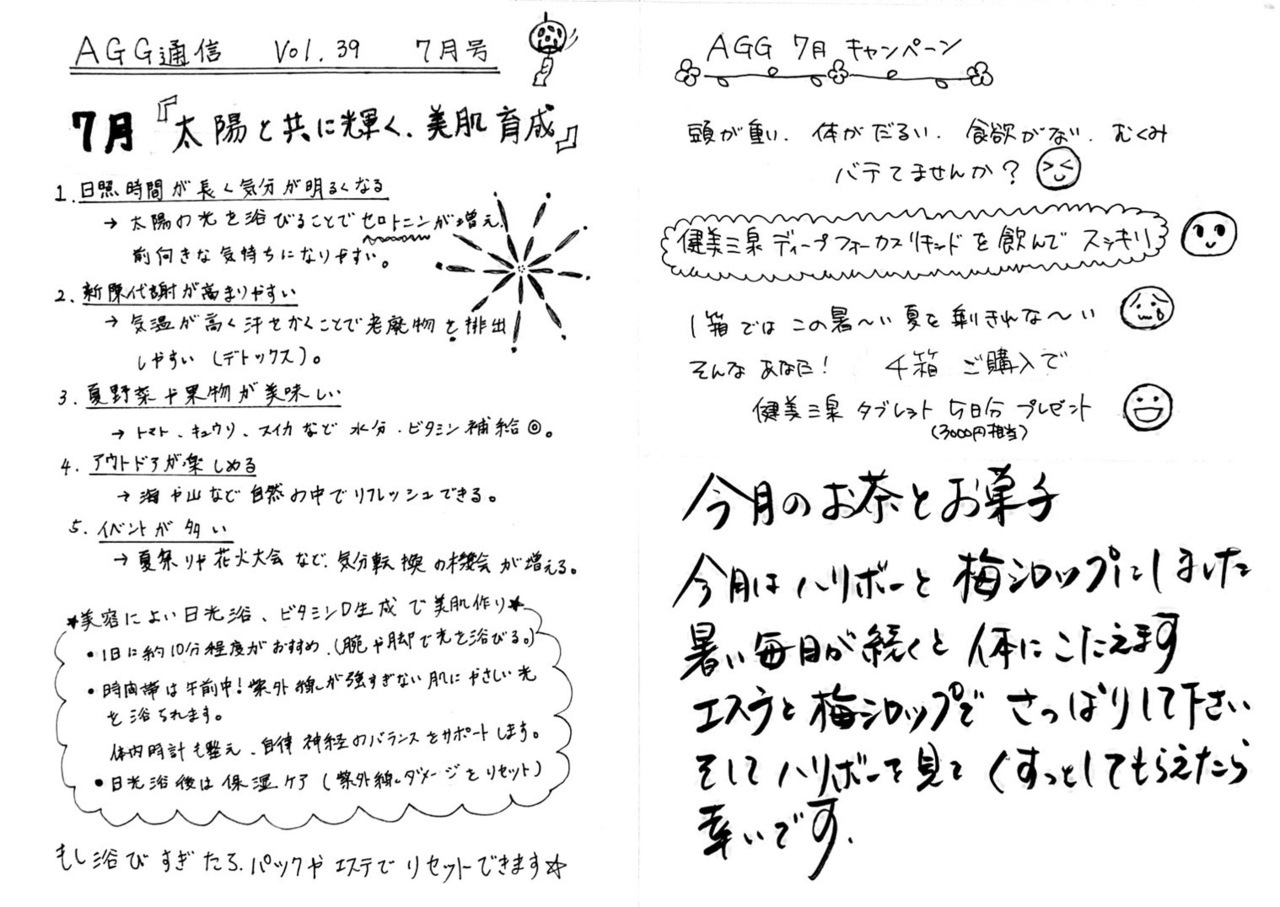 AGG通信 Vol.39 7月号
7月『太陽と共に輝く、美肌育成』
1. 日照時間が長く気分が明るくなる
→ 太陽の光を浴びることでセロトニンが増え、
前向きな気持ちになりやすい。
2. 新陳代謝が高まりやすい
→ 気温が高く汗をかくことで老廃物を排出
しやすい(デトックス)。
3. 夏野菜や果物が美味しい
→ トマト、キュウリ、スイカなど水分・ビタミン補給◎。
4. アウトドアが楽しめる
→ 海や山など自然の中でリフレッシュできる。
5. イベントが多い
→ 夏祭りや花火大会など、気分転換の機会が増える。
★美容によい日光浴、ビタミンD生成で美肌作り★
• 1日に約10分程度がおすすめ.(腕や脚で光を浴びる。)
• 時間帯は午前中!紫外線が強すぎない肌にやさしい光
を浴られます。
体内時計も整え、自律神経のバランスをサポートします。
• 日光浴後は保湿ケア(紫外線ダメージをリセット)
もし浴びすぎたら、パックやエステでリセットできます☆
AGG 7月 キャンペーン
頭が重い、体がだるい、食欲がない、むくみ
バテてませんか?
健美三泉ディープフォーカスリキッドを飲んでスッキリ
1箱ではこの暑〜い夏を乗りきれな〜い
そんなあなに! 4箱ご購入で
健美三泉タブレット5日分プレゼント
(3000円相当)
今月のお茶とお菓子
今月はハリボーと梅シロップにしました
暑い毎日が続くと体にこたえます
エステと梅シロップでさっぱりして下さい
そしてハリボーを見てくすっとしてもらえたら
幸いです.